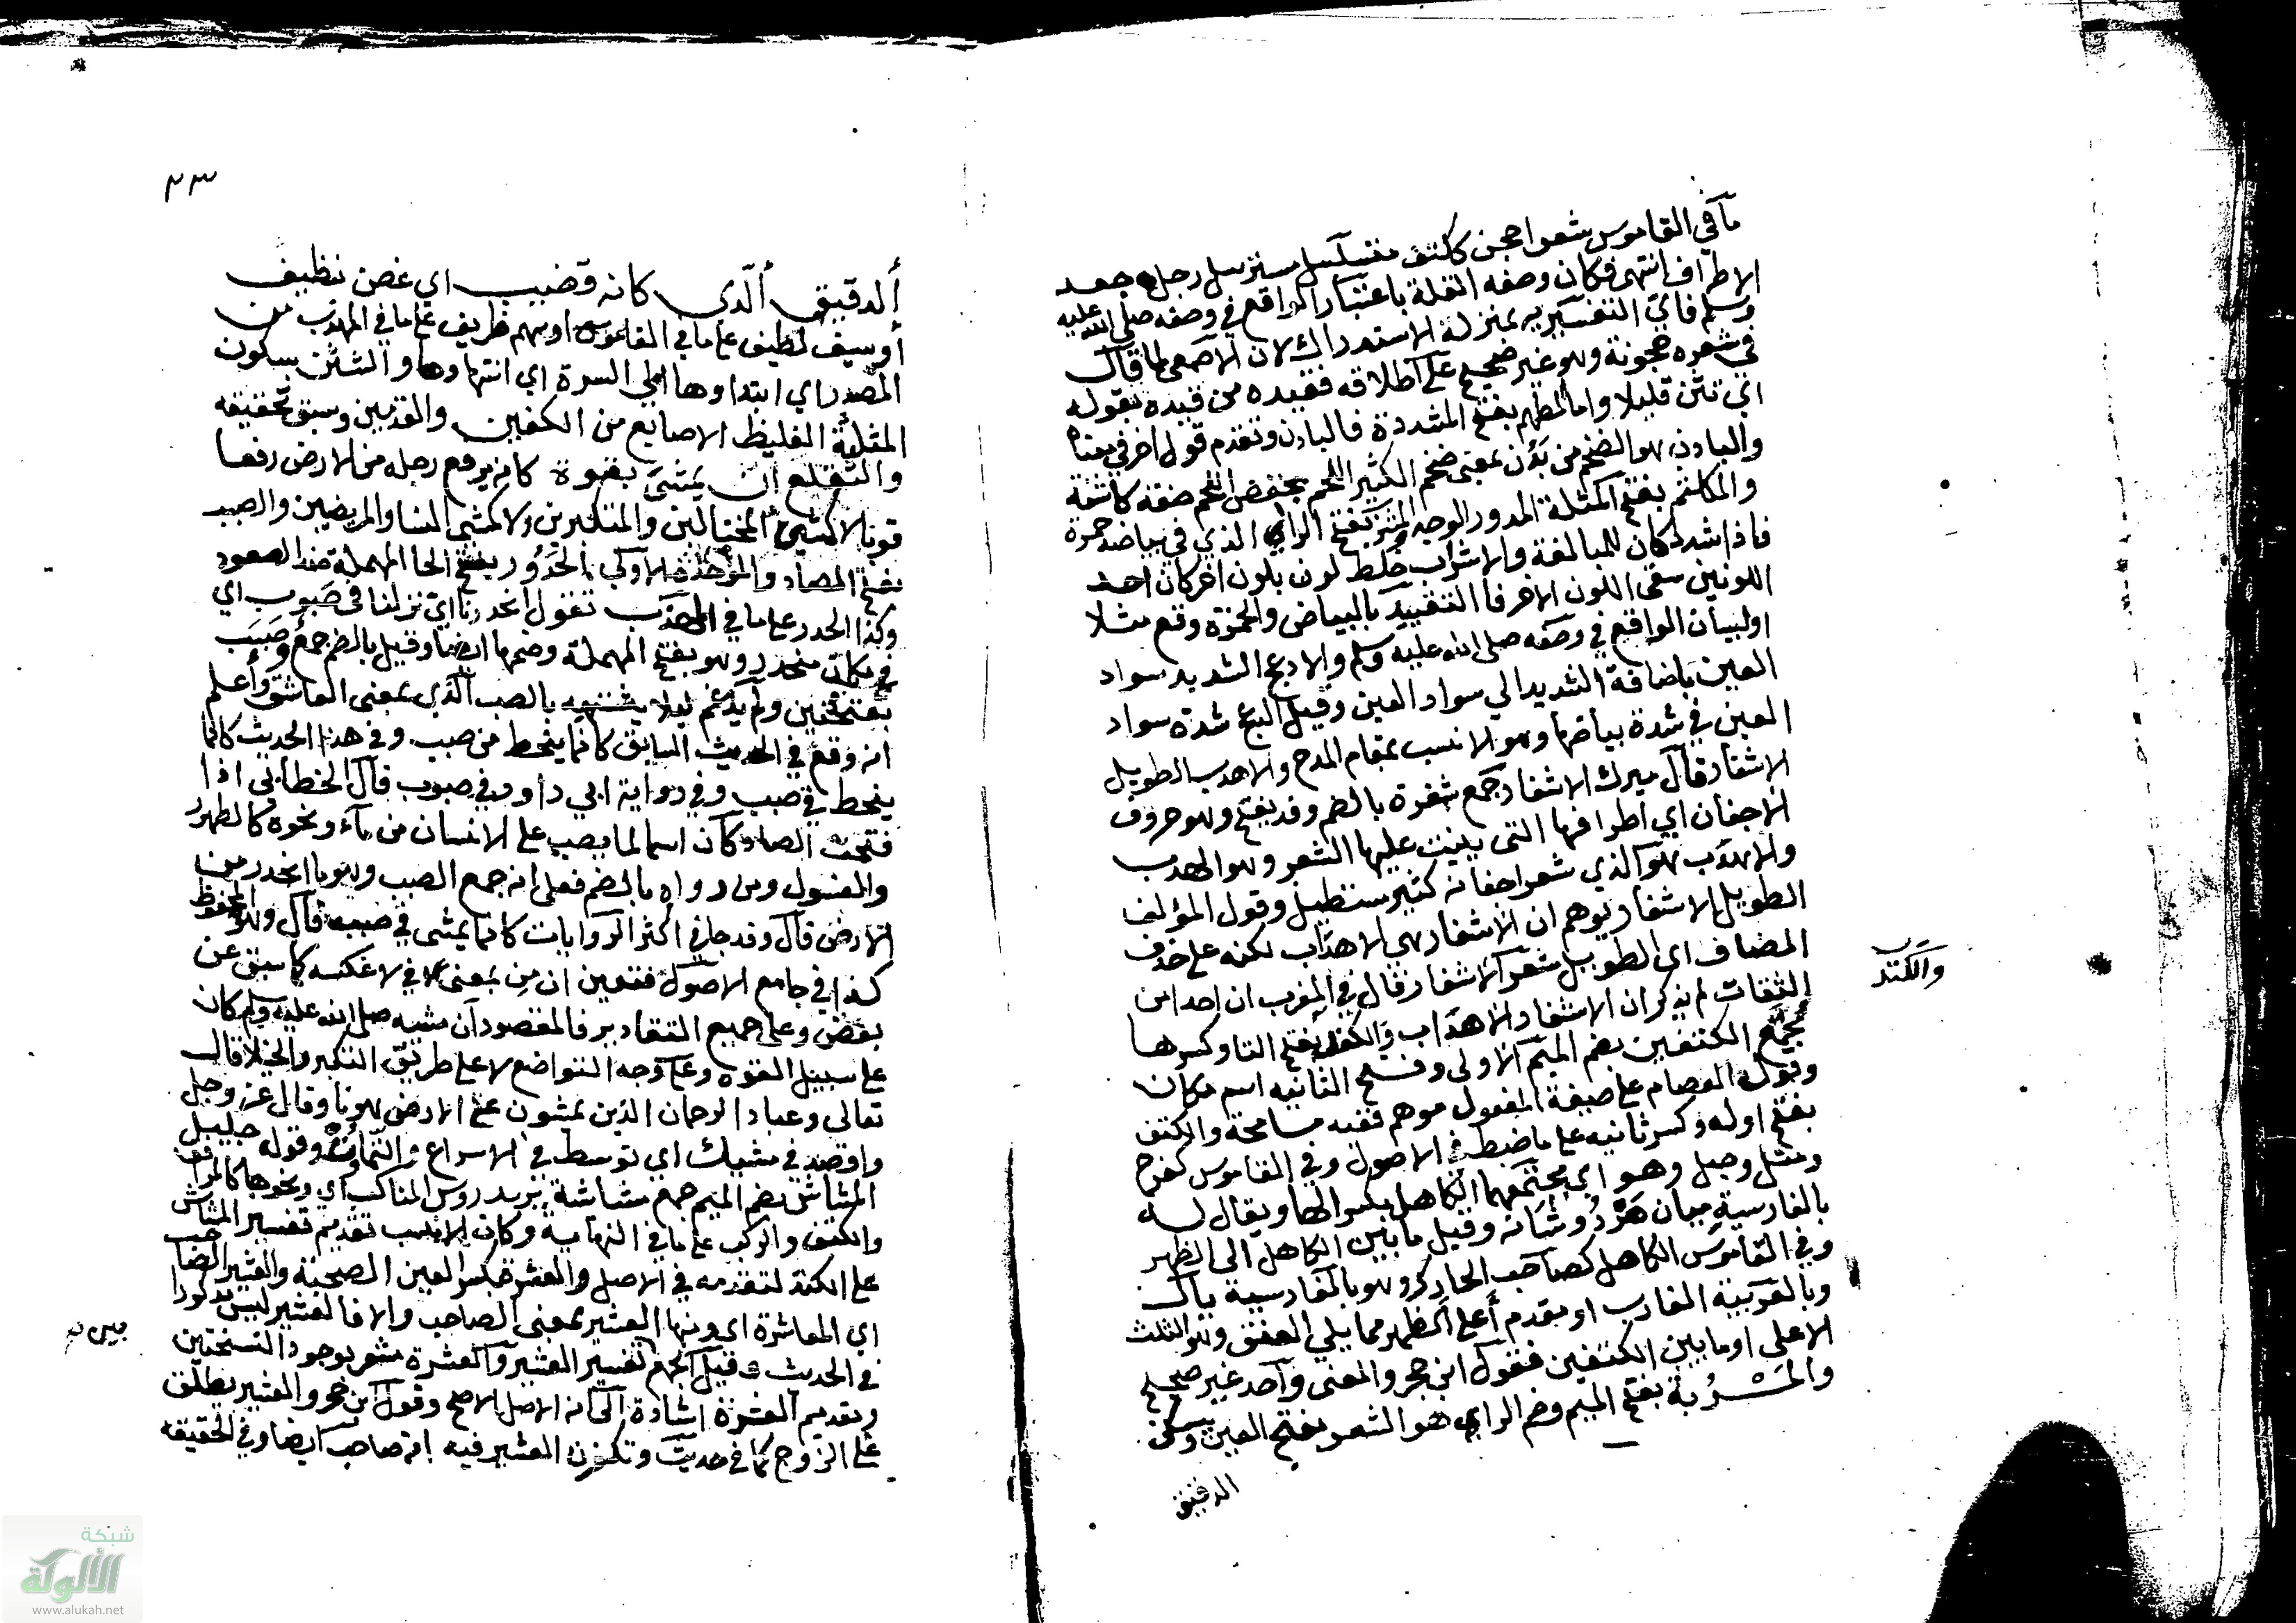 ما في القاموس شعر احجن ككتف متسلسل مسترسل رجل جعد
الاطراف انتهى فكان وصفه النقلة باعتبار الواقع في وصفه صلى الله عليه
وسلم فاتي التفسير به بمنزلة الاستدراك لان الاصمعي لما قال
في شعره حجونة وهو غير صحيح على اطلاقه فقيده من قيده بقوله
اي تثن قليلا واما المطهم بفتح المشددة فالبادن وتقدم قول اخر في معناه
والبادن هو الضخم من بدن بمعنى ضخم الكثير اللحم بخفض اللحم صفة كاشفة
والمكلثم بفتح المثلثة المدور الوجه والمشرب بفتح الراي الذي في بياضه حمرة
فاذا شدد كان للمبالغة والاشراب خلط لون بلون اخر كان احد
اللونين سقى اللون الاخر فالتقييد بالبياض والحمرة وقع مثلا
او لبيان الواقع في وصفه صلى الله عليه وسلم والادعج الشديد سواد
العين باضافة الشديد الى سواد العين وقيل الدعج شدة سواد
العين في شدة بياضها وهو الانسب بمقام المدح والاهدب الطويل
الاشفار قال ميرك الاشفار جمع شفرة بالضم وقد يفتح وهو حروف
الاجفان اي اطرافها التي ينبت عليها الشعر وهو الهدب
والاهدب هو الذي شعر اجفانه كثير مستطيل وقول المؤلف
الطويل الاشفار يوهم ان الاشفار هي الاهداب لكنه على حذف
المضاف اي الطويل شعر الاشفار قال في المغرب ان احدا من
الثقات لم يذكر ان الاشفار الاهداب والكتد بفتح التا وكسرها
والكتد
مجتمع الكتفين بضم الميم الاولى وفتح الثانيه اسم مكان
وقول العصام على صيغة المفعول موهم ففيه مسامحة والكتف
بفتح اوله وكسر ثانيه على ما ضبط في الاصول وفي القاموس كفرح
ومثل وحبل وهو اي مجتمعهما الكاهل بكسر الها ويقال له
بالفارسية ميان هر دو شانه وقيل ما بين الكاهل الى الظهر
وفي القاموس الكاهل كصاحب الحارك وهو بالفارسية يال
وبالعربية الغارب او مقدم أعلى الظهر مما يلي العنق وهو الثلث
الاعلى او ما بين الكتفين فقول ابن حجر والمعنى واحد غير صحيح
والمسربة بفتح الميم وضم الراي هو الشعر بفتح العين ويسكن
الدقيق
٢٣
ألدقيق ألذي كانه قضيب اي غصن نظيف
أو سيف لطيف على ما في القاموس او سهم ظريف على ما في المهذب من
المصدر اي ابتداوها الى السرة اي انتهاوها والشثن بسكون
المثلثة الغليظ الاصابع من الكفين والقدمين وسبق تحقيقه
والتقلع ان يمشي بقوة كانه يرفع رجله من الارض رفعا
قويا لا كمشي المختالين والمتكبرين ولا كمشي النسا والمريضين والصبب
بفتح المهملة والموحدة الاولى الحدور بفتح الحا المهملة ضد الصعود
وكذا الحدر على ما في المهذب تقول انحدرنا اي نزلنا في صبوب اي
في مكان منحدر وهو بفتح المهملة وضمها ايضا وقيل بالضم جمع صبب
بفتحتين ولم يدغم ليلا يشتبه بالصب الذي بمعنى العاشق وأعلم
انه وقع في الحديث السابق كانما ينحط من صبب وفي هذا الحديث كانما
ينحط في صبب وفي رواية ابي داود في صبوب قال الخطابي اذا
فتحت الصاد كان اسما لما يصب على الانسان من ماء ونحوه كالطهور
والغسول ومن رواه بالضم فعلى انه جمع الصبب وهو ما انحدر من
الارض قال وقد جا في اكثر الروايات كانما يمشي في صبب قال وهو المحفوظ
كذا في جامع الاصول فتعين ان من بمعنى في لا عكسه كما سبق عن
بعض وعلى جميع التقادير فالمقصود أن مشيه صلى الله عليه وسلم كان
على سبيل القوه وعلى وجه التواضع لا على طريق التكبر والخيلا قال
تعالى وعباد الرحمان الذين يمشون على الارض هونا وقال عز وجل
واقصد في مشيك اي توسط في الاسراع والتماوت وقوله جليل
المشاش بضم الميم جمع مشاشة يريد روس المناكب اي ونحوها كالمرافق
والكتف والركب على ما في النهاية وكان الانسب تقديم تفسير المشاش
على الكتد لتقدمه في الاصل والعشرة بكسر العين الصحبة والعشير الصاحب
اي المعاشرة اي ومنها العشير بمعنى الصاحب والا فالعشير ليس مذكورا
في الحديث وقيل الجمع تفسير العشير والعشرة مشعر بوجود النسختين
وتقديم العشرة اشارة الى انه الاصل الاصح وقول ابن حجر والعشير يطلق
على الزوج كما في حديث وتكفرن العشير فيه انه صاحب ايضا وفي الحقيقه
شبكة
الألوكة
www.alukah.net